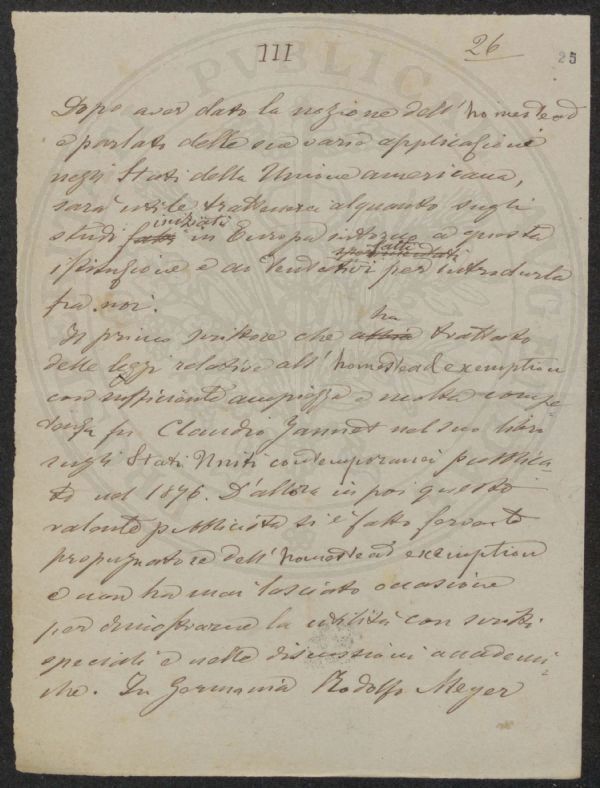 III
26
25
Dopo aver dato la nozione dell'homestead
e parlato delle sue varie applicazioni
negli Stati della Unione americana,
sarà utile trattenerci alquanto sugli
iniziati
studi fatti in Europa intorno a questa
fatti
istituzione e ai tentativi per introdurla
fra noi.
ha
Il primo scrittore che abbia trattato
delle leggi relative all'homestead exemption
con sufficiente ampiezza e molta compe-
tenza fu Claudio Jannet nel suo libro
sugli Stati Uniti contemporanei pubblica-
to nel 1876. D'allora in poi questo
valente pubblicista si è fatto fervente
propugnatore dell'homestead exemption
e non ha mai lasciato occasione
per dimostrarne la utilità con scritti
speciali e nelle discussioni accademi-
che. In Germania Rodolfo Meyer